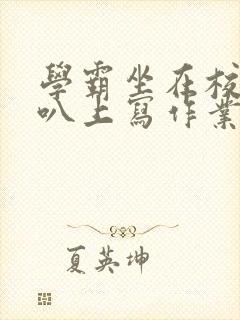 學霸坐在校
叭上寫作業
夏英坤